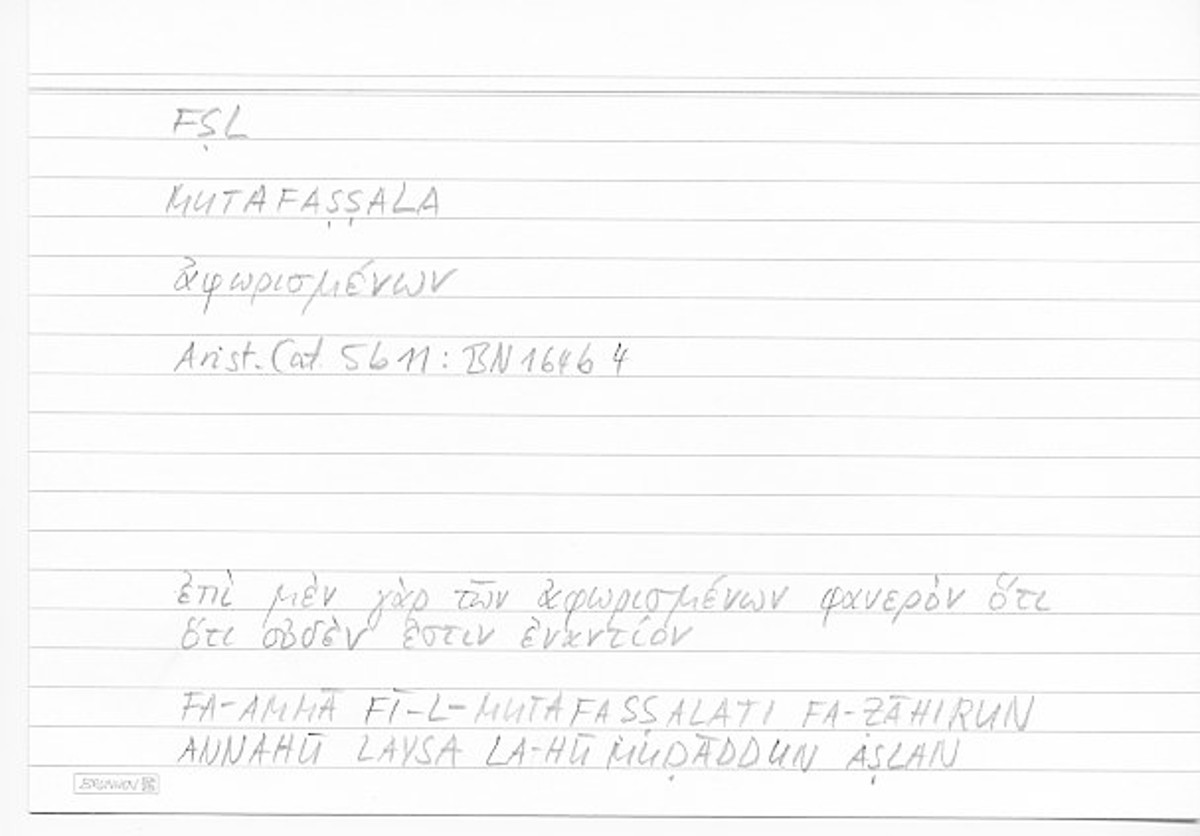 FṢL
MUTAFAṢṢALA
ἀφωρισμένων
Arist. Cat. 5b11: BN 164b 4
ἐπὶ μὲν γὰρ τῶν ἀφωρισμένων φανερὸν ὅτι
ὅτι οὐδέν ἐστιν ἐναντίον
FA-AMMĀ FĪ-L-MUTAFAṢṢALATI FA-ẒĀHIRUN
ANNAHŪ LAYSA LA-HŪ MUḌĀDDUN AṢLAN
BRUNNEN